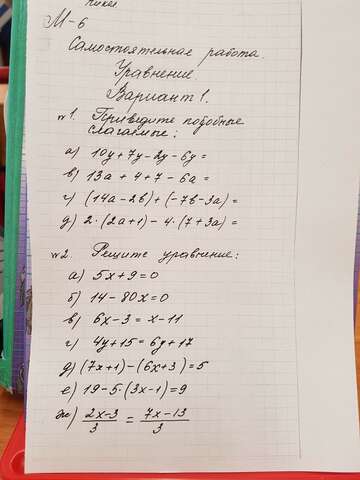 М-6
Самостоятельная работа
Уравнение.
Вариант 1.
№1. Приведите подобные
слагаемые:
а) 10y+7y-2y-6y=
в) 13a+4+7-6a=
г) (14a-2b)+(-7b-3a)=
д) 2·(2a+1)-4·(7+3a)=
№2. Решите уравнение:
а) 5x+9=0
б) 14-80x=0
в) 6x-3=x-11
г) 4y+15=6y+17
д) (7x+1)-(6x+3)=5
е) 19-5·(3x-1)=9
ж) (2x-3)/3 = (7x-13)/3